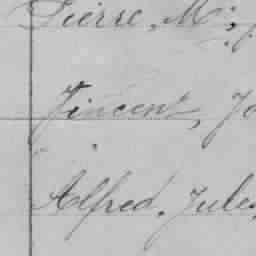 Pierre, M
Vincent, Jo
Alfred, Jules